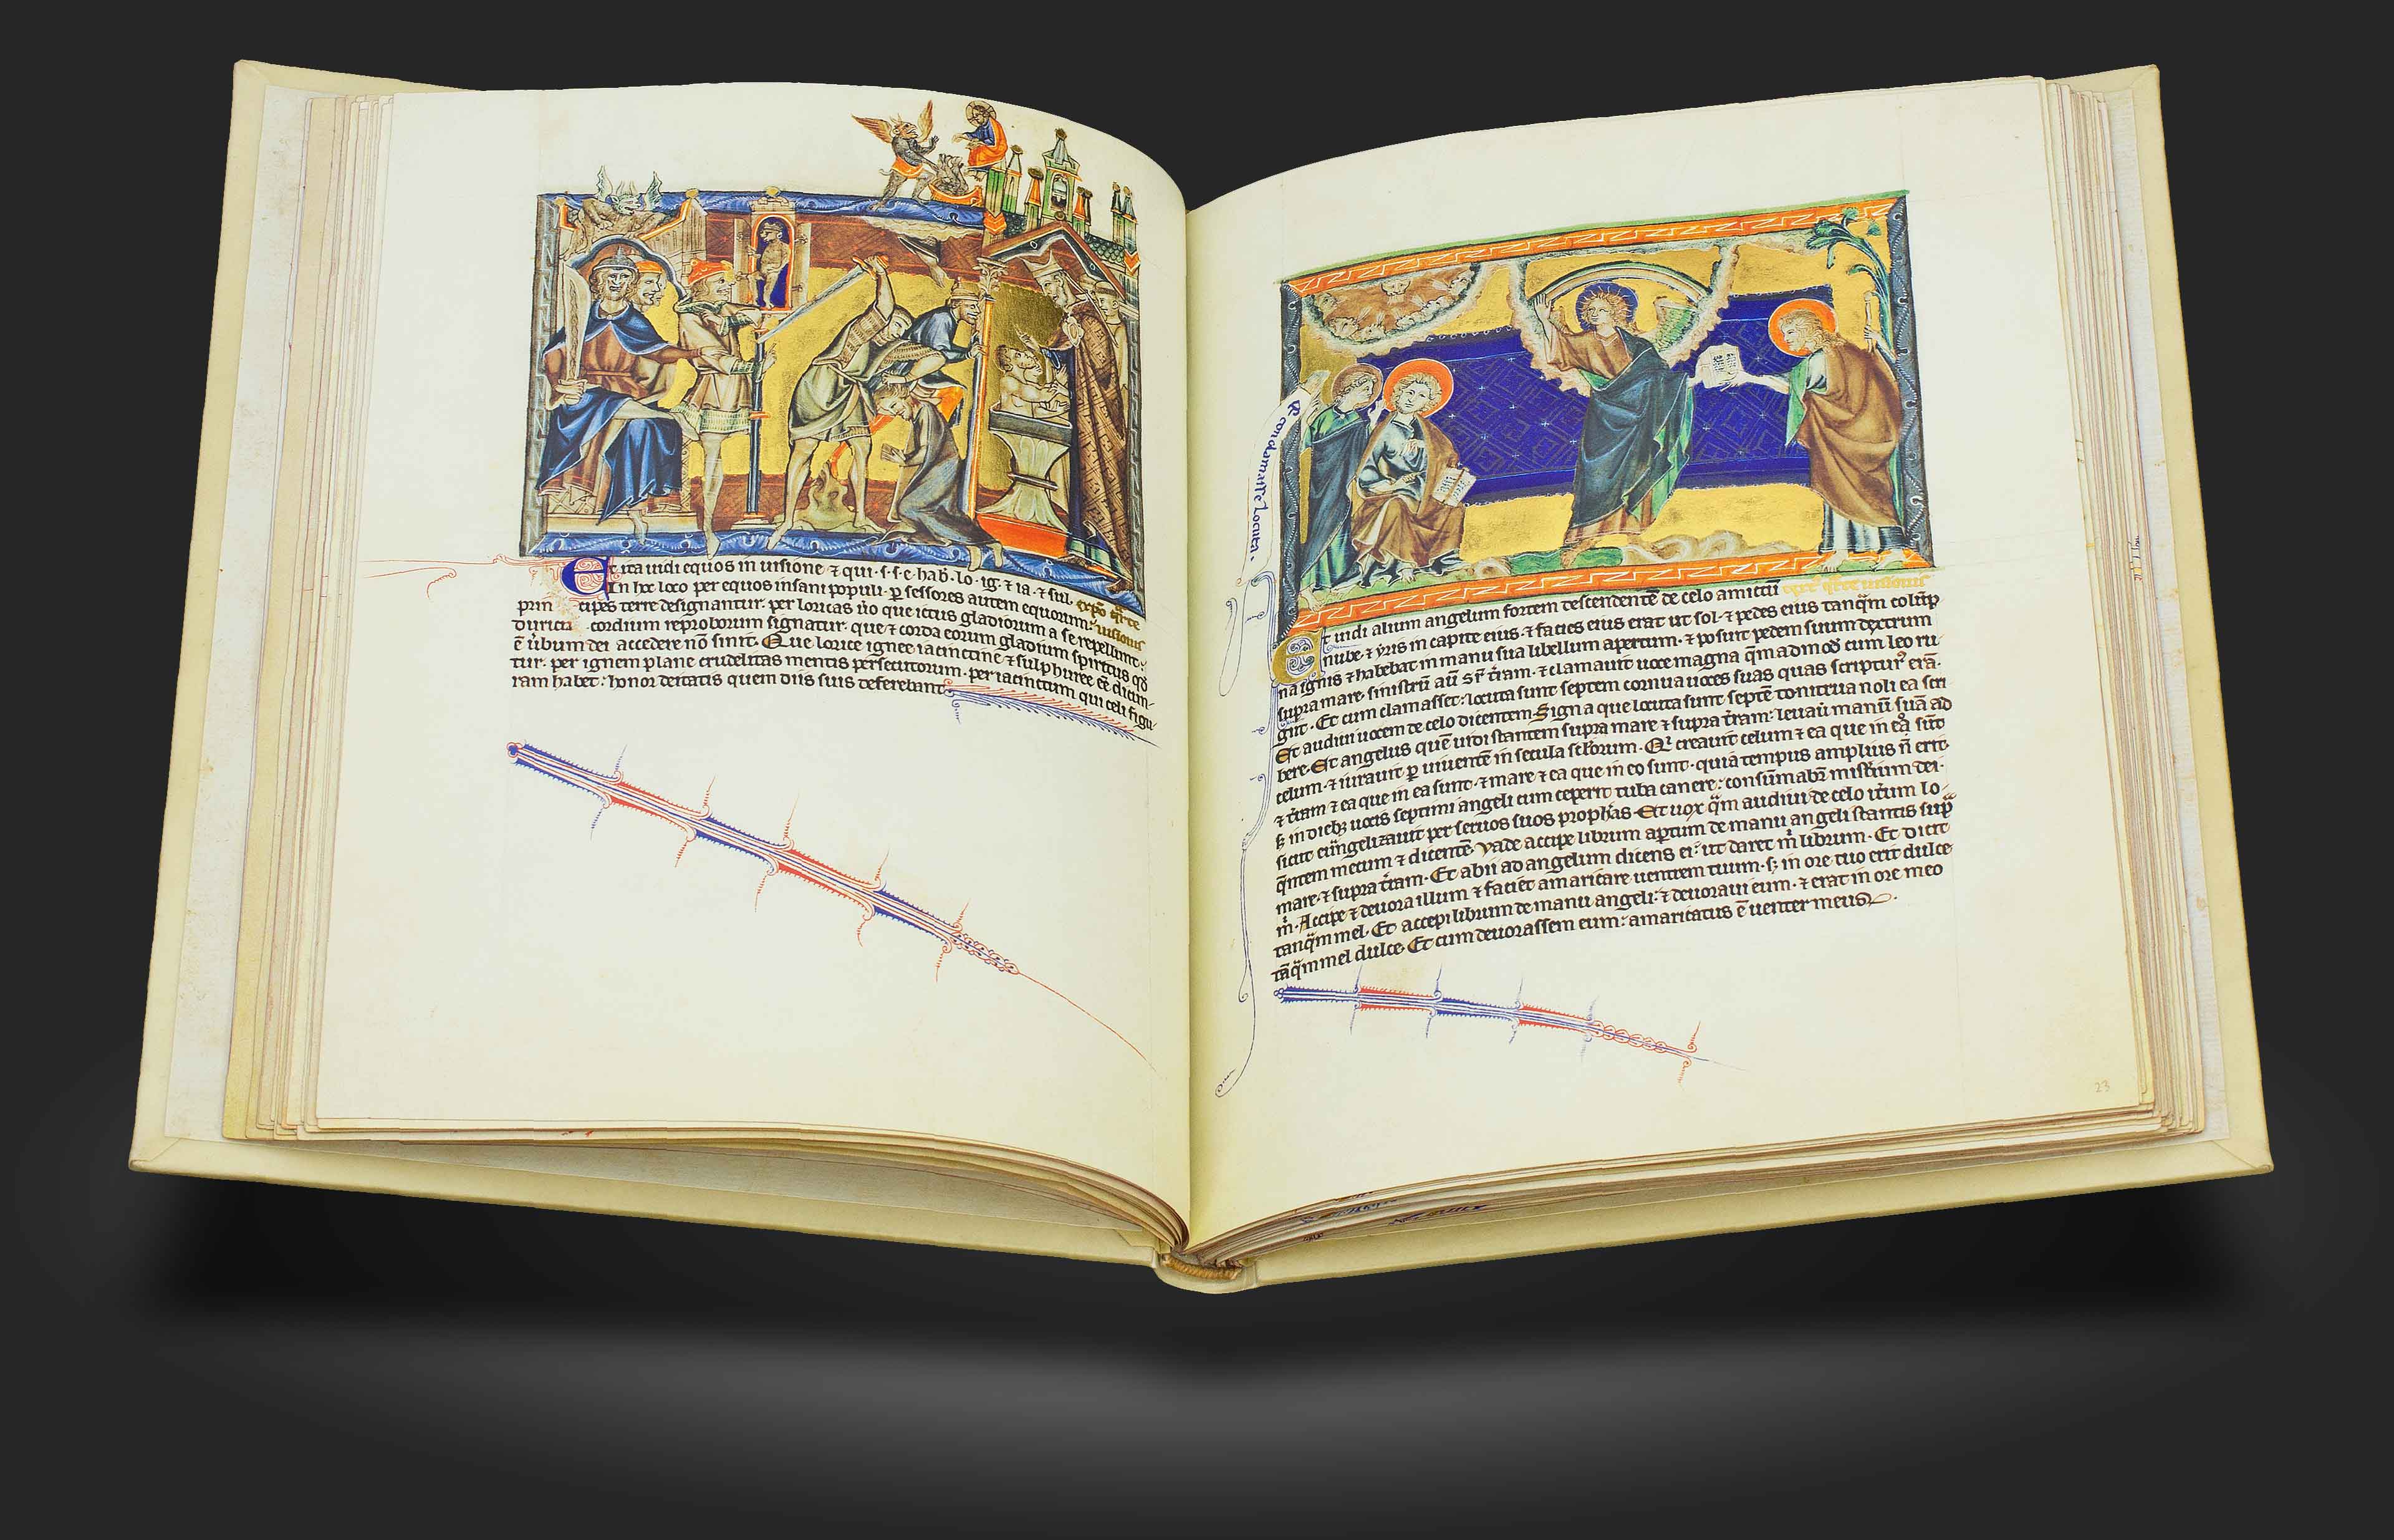 Et ita uidi equos in uisione ⁊ qui·s·s·e·hab̄·lo·ig·⁊ ia·⁊ sul.
In hoc loco per equos insani populi· ꝑ sessores autem equorum: expo qrte
prin cipes terre designantur· per loricas u̇o que ictus gladiorum a se repellunt: uisionis
duricia cordium reproborum signatur· que ⁊ corda eorum gladium spiritus qd̄
ē u̇bum dei accedere nō sinit· Que lorice ignee iacinctine ⁊ sulphuree eē dicun-
tur· per ignem plane crudelitas mentis persecutorum· per iacinctum qui celi figu-
ram habet: honor deitatis quem diis suis deferebant
Et uidi alium angelum fortem descendentē de celo amictū
nube·⁊ yris in capite eius·⁊ facies eius erat ut sol·⁊ pedes eius tanqm̄ colūp
na ignis ⁊ habebat in manu sua libellum apertum·⁊ posuit pedem suum dextrum
supra mare· sinistrū aū sr̄ t̄ram·⁊ clamauit uoce magna qm̄admod̄ cum leo ru-
git· Et cum clamasset: locuta sunt septem cornua uoces suas quas scriptur᾽ erā·
Et audiui uocem de celo dicentem Signa que locuta sunt septē tonitrua noli ea scri
bere· Et angelus quē uidi stantem supra mare ⁊ supra t̄ram: leuaū manū suā ad
celum·⁊ iurauit ꝑ uiuentē in secula sc̄lorum· Qͥ creauit celum ⁊ ea que in eo sūt
⁊ t̄ram ⁊ ea que in ea sunt·⁊ mare ⁊ ea que in eo sunt· quia tempus amplius n̄ erit·
sȝ in diebȝ uocis septimi angeli cum ceperit tuba canere: consūmabit̄ mist̄ium dei·
sicut euūngelizauit per seruos suos proph̄as· Et uox qm̄ audiui de celo it̄um lo-
qn̄tem mecum ⁊ dicentē· Vade accipe librum ap̄tum de manu angeli stantis supra
mare·⁊ supra t̄ram· Et abii ad angelum dicens ei: ut daret m̄ librum· Et dicit
m̄· Accipe ⁊ deuora illum ⁊ faciet amaricare uentrem tuum· sȝ in ore tuo erit dulce
tanqm̄ mel· Et accepi librum de manu angeli:⁊ deuoraui eum·⁊ erat in ore meo
tāqm̄ mel dulce· Et cum deuorassem eum: amaricatus ē uenter meus
23